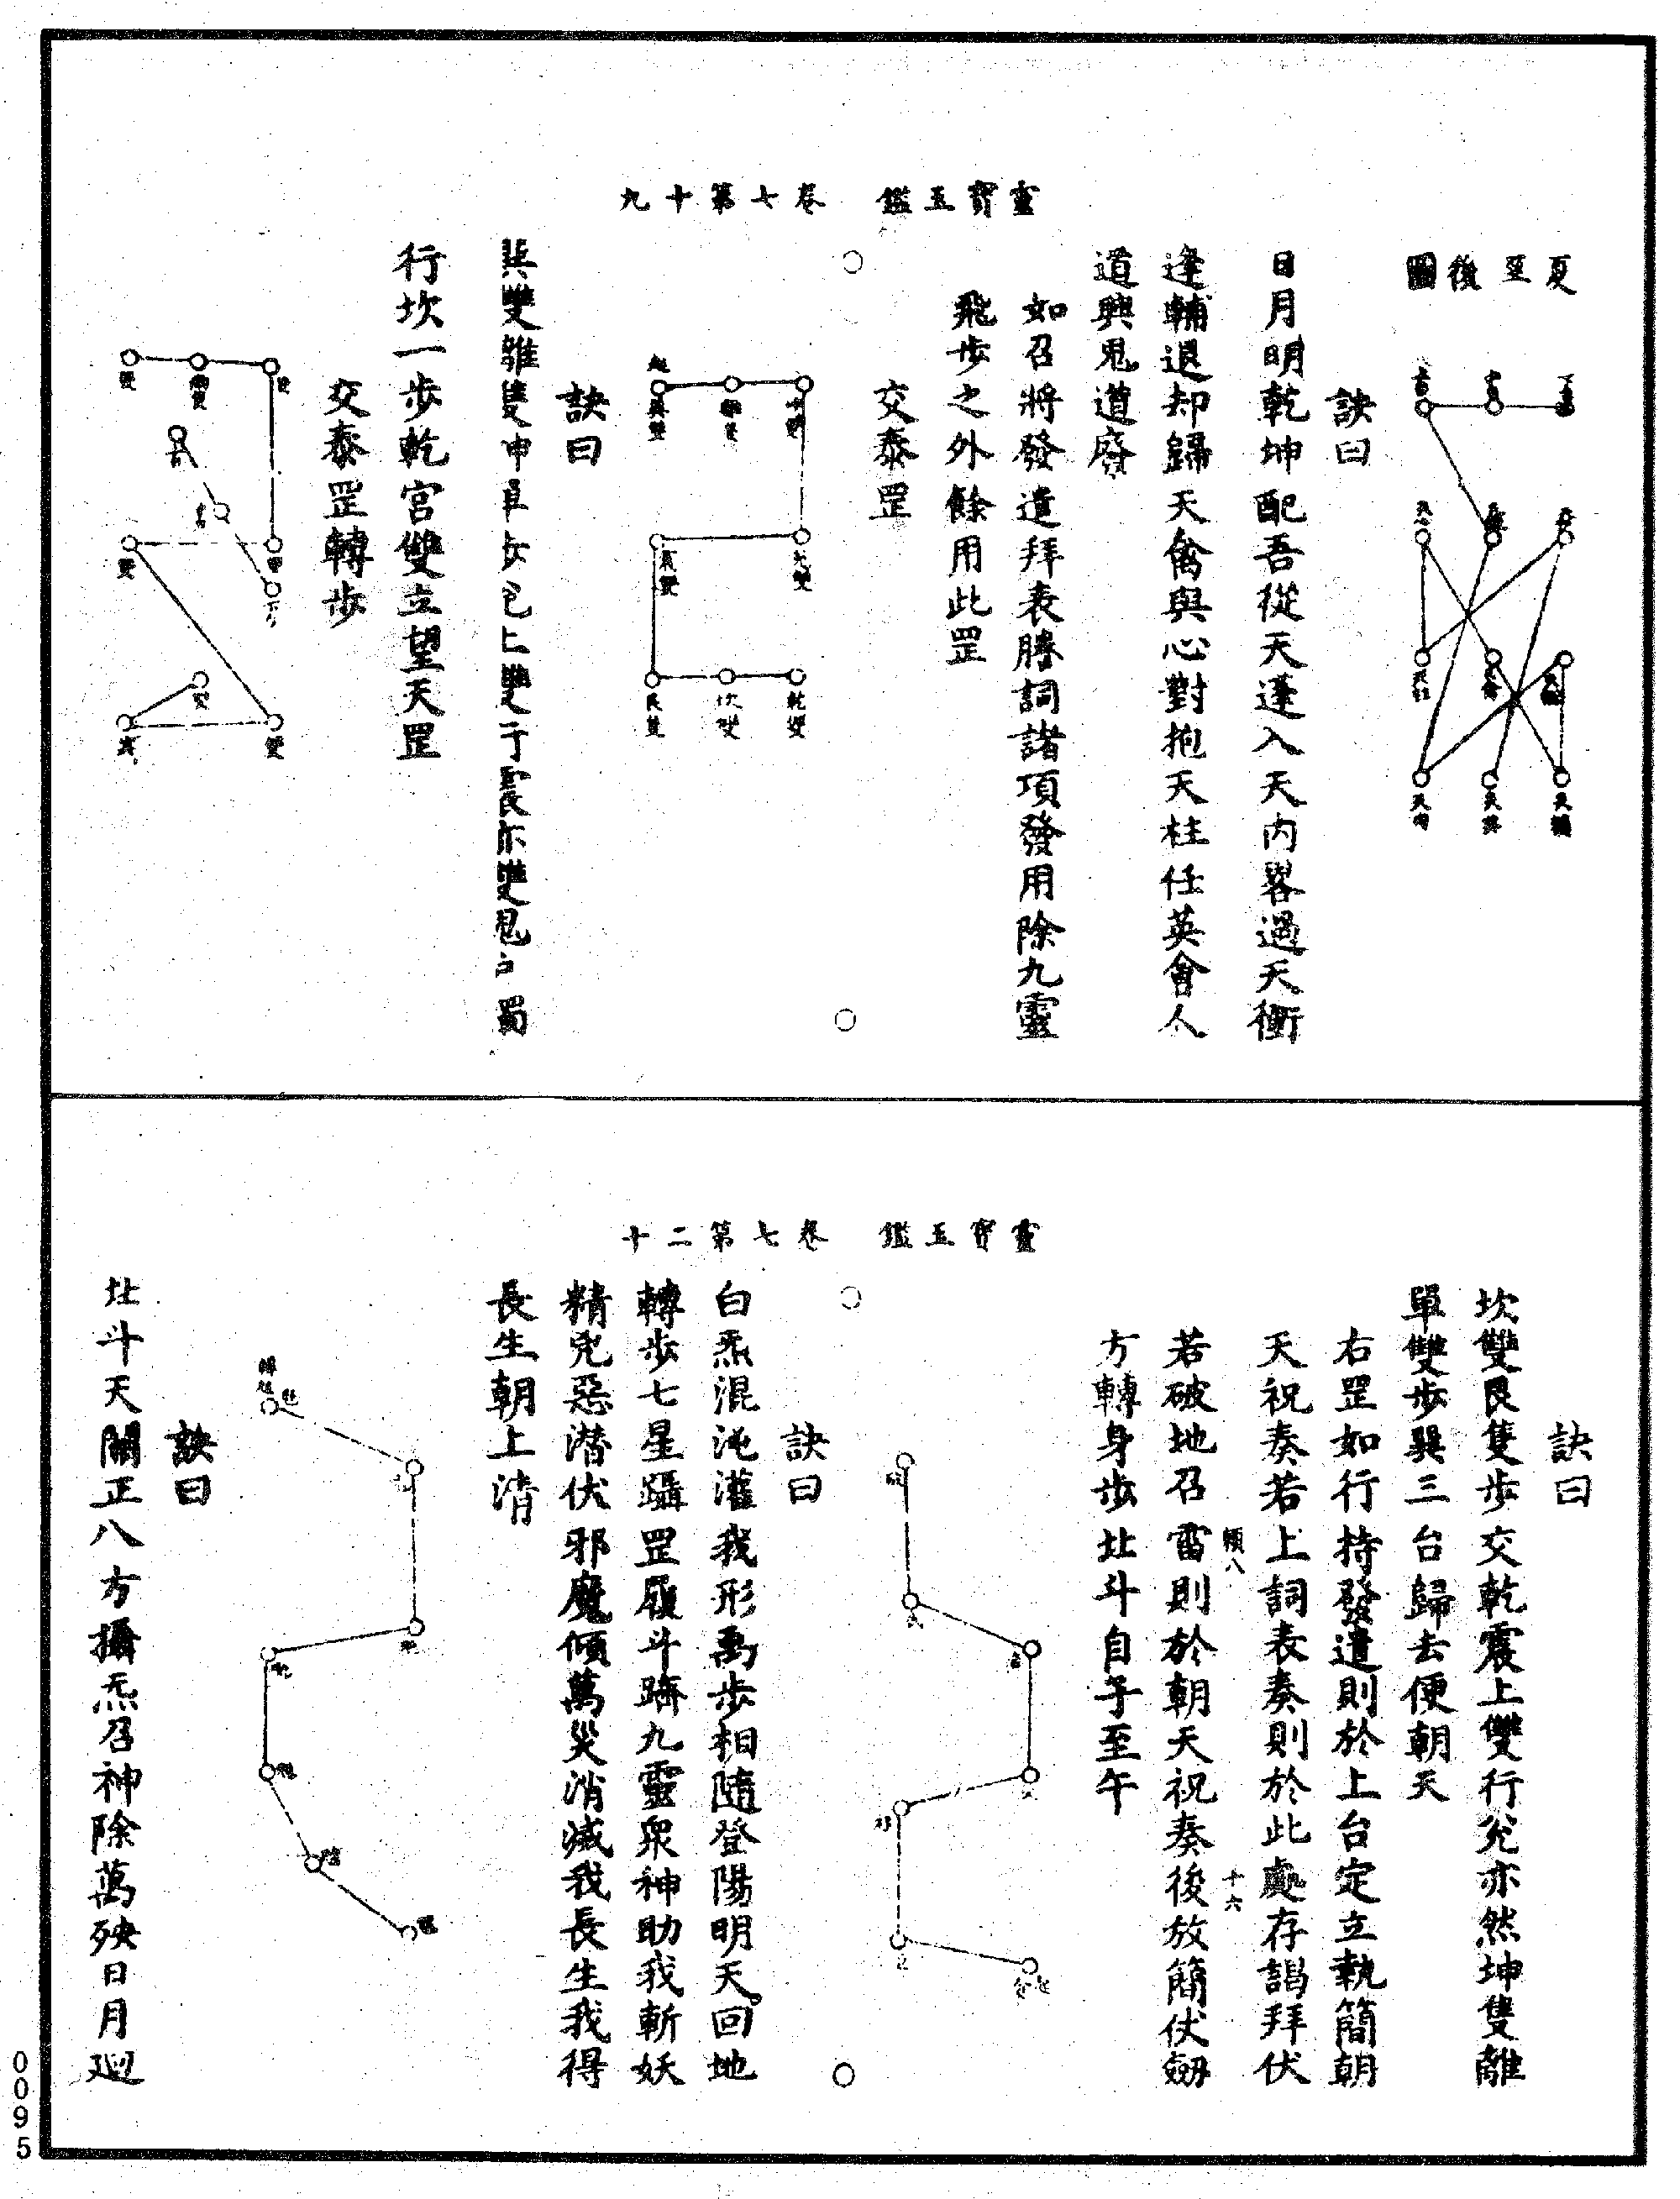 靈寶玉鑑　卷七第十九
夏至後圖
訣曰
日月明乾坤配吾從天蓬入天內畧過天衝
逢輔退却歸天禽與心對抱天柱任英會人
道興鬼道廢
如召將發遣拜表牓詞諸項發用除九靈
飛步之外餘用此罡
交泰罡
訣曰
巽雙離隻坤
上雙行震亦雙鬼戶
行坎一步乾宮雙立望天罡
交泰罡轉步
靈寶玉鑑　卷七第二十
訣曰
坎雙艮隻步交乾震上雙行兊亦然坤隻離
單雙步巽三台歸去便朝天
右罡如行持發遣則於上台定立執簡朝
天祝奏若上詞表奏則於此處存謁拜伏
傾八　十六
若破地召雷則於朝天祝奏後放簡伏劒
方轉身步北斗自子至午
訣曰
白炁混沌灌我形禹步相隨登陽明天回地
轉步七星躡罡履斗躋九靈衆神助我斬妖
精兇惡潜伏邪魔傾萬災消滅我長生我得
長生朝上清
訣曰
北斗天關正八方攝炁召神除萬殃日月廻
0095